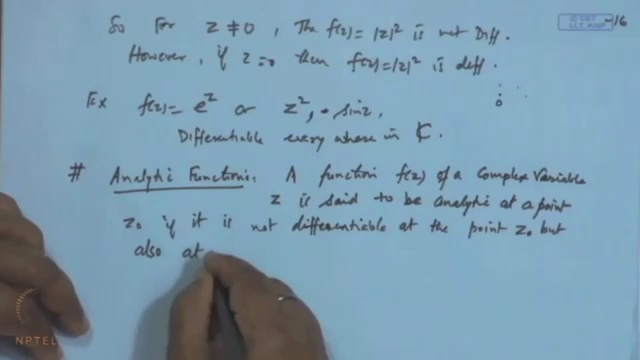 So For z ≠ 0, The f(z) = |z|² is not Diff.
However, if z = 0 then f(z) = |z|² is diff.
Ex f(z) = e^z or z², sin z,
Differentiable every where in ₵.
# Analytic Function: A function f(z) of a Complex Variable
z is said to be analytic at a point
z₀ if it is not differentiable at the point z₀ but
also at
NPTEL